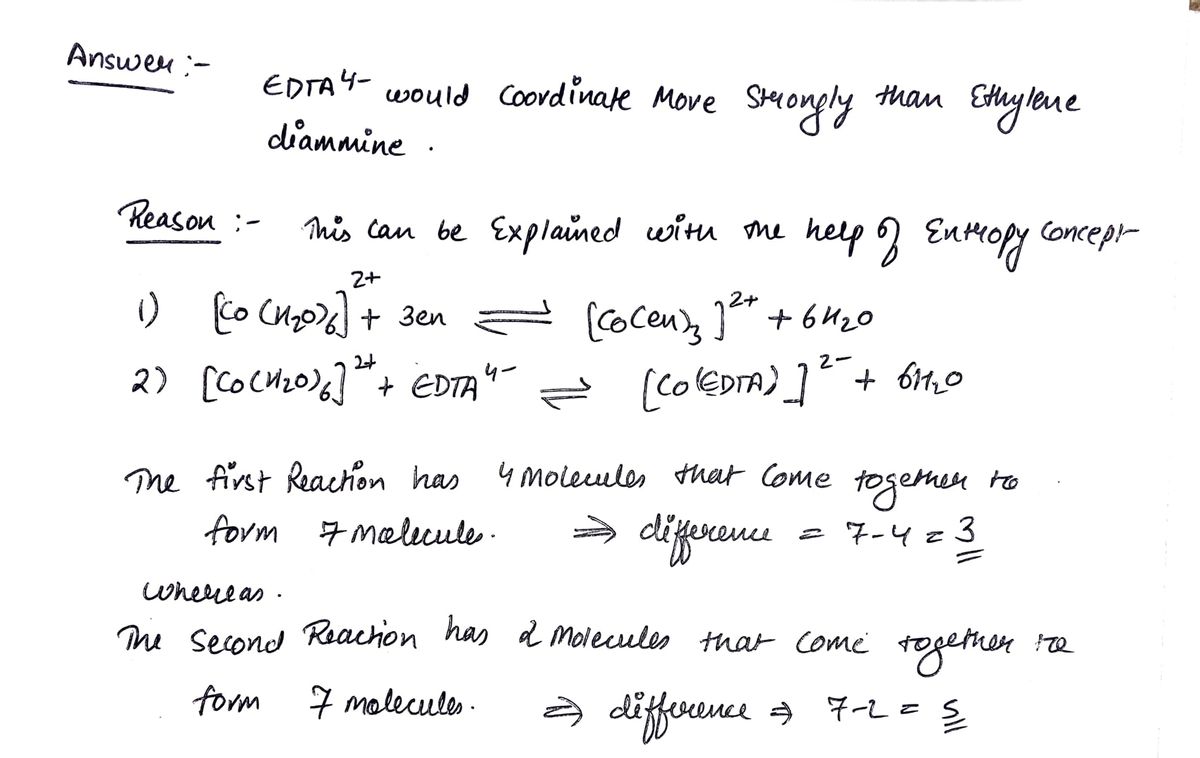 Answer :-
EDTA⁴⁻ would Coordinate More Strongly than Ethylene
diammine .
Reason :- This can be Explained with the help of Entropy Concept
1) [Co(H₂O)₆]²⁺ + 3en ⇌ [Co(en)₃]²⁺ + 6H₂O
2) [Co(H₂O)₆]²⁺ + EDTA⁴⁻ ⇌ [Co(EDTA)]²⁻ + 6H₂O
The first Reaction has 4 Molecules that Come together to
form 7 molecule. ⇒ difference = 7-4 = 3
whereas .
The Second Reaction has 2 Molecules that Come together to
form 7 molecules. ⇒ difference ⇒ 7-2 = 5